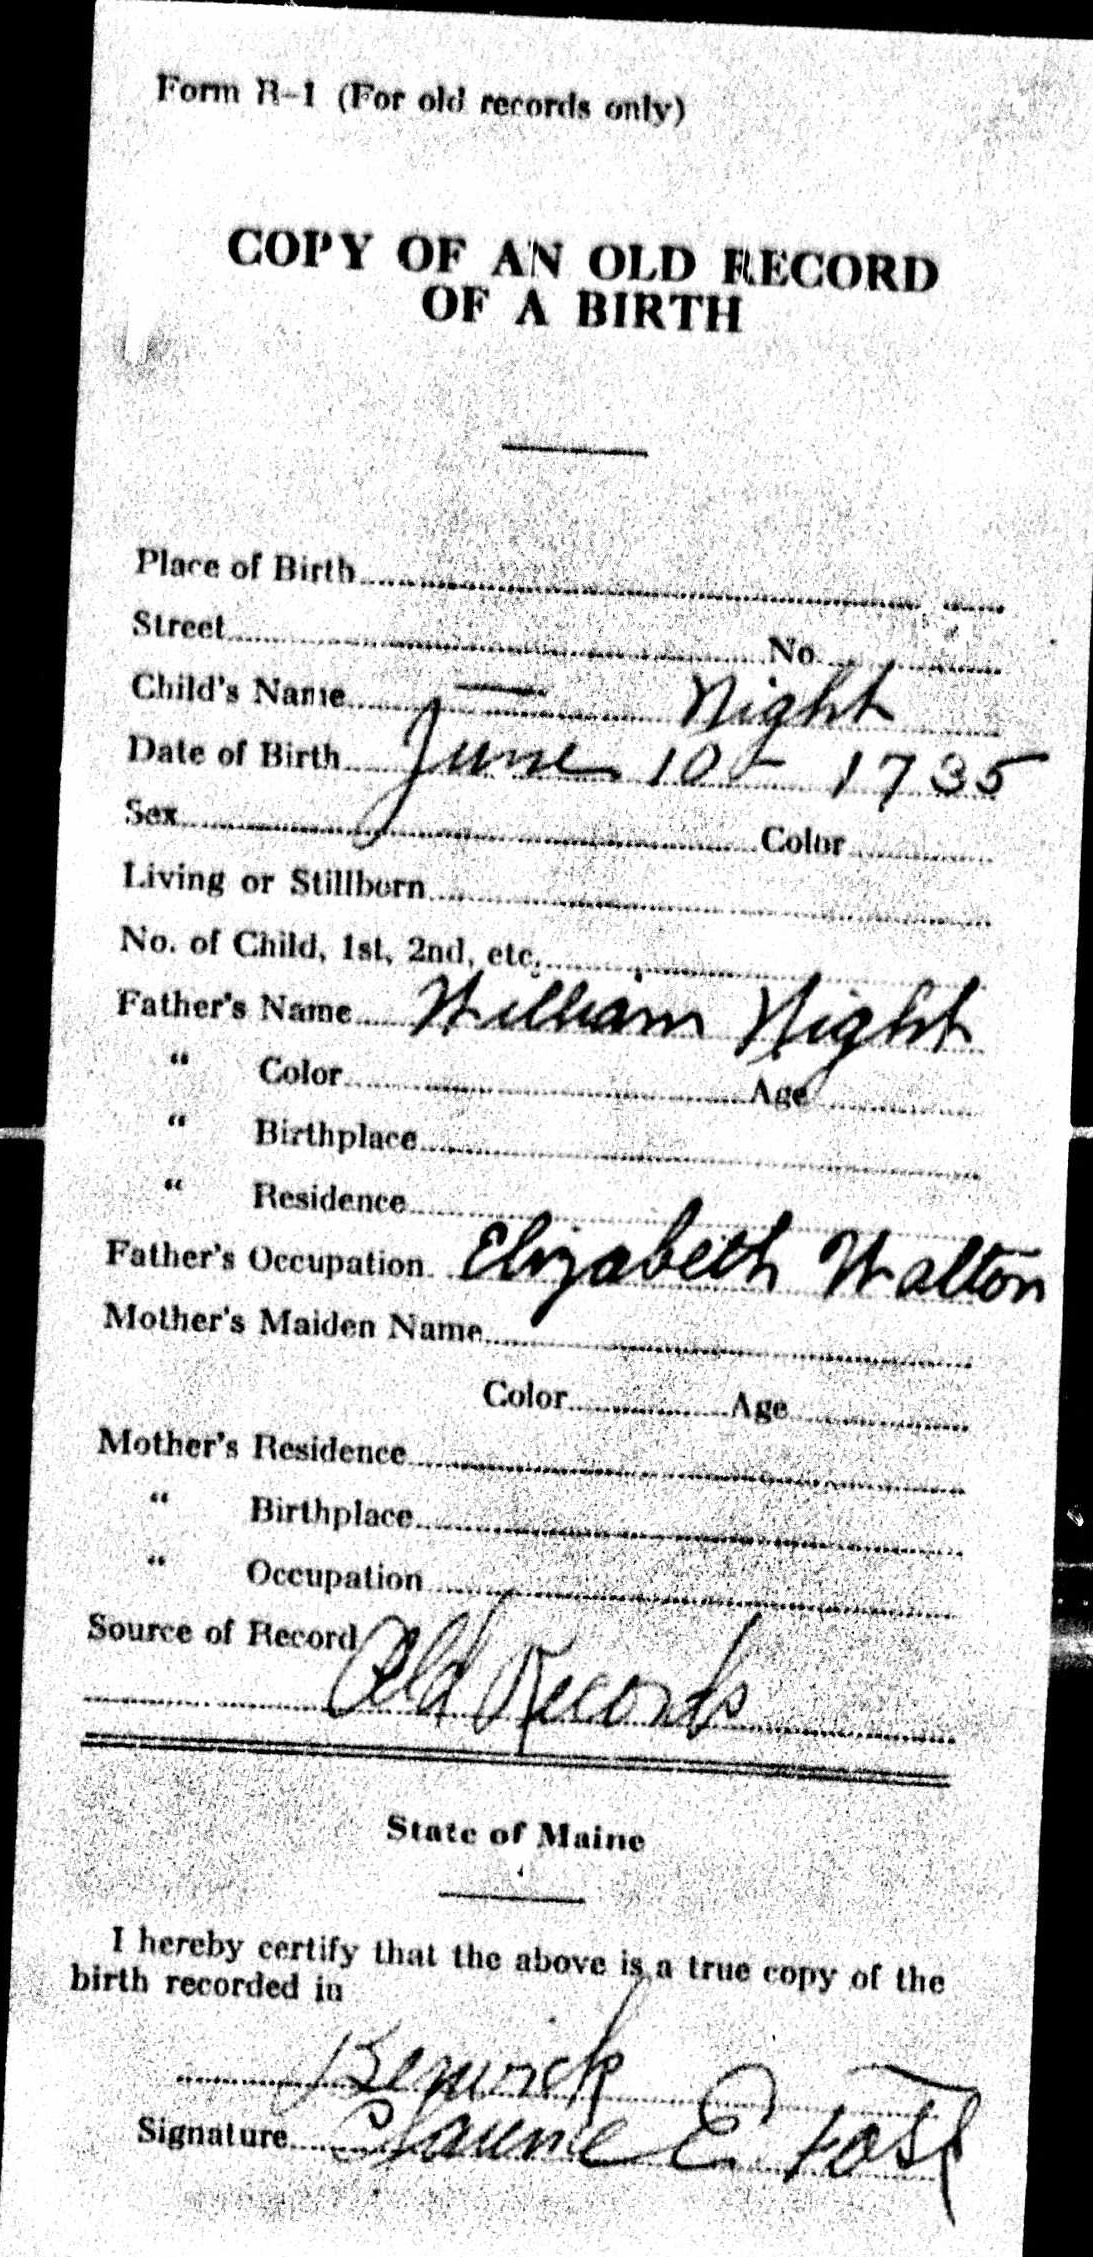 Form R-1 (For old records only)
COPY OF AN OLD RECORD
OF A BIRTH
Place of Birth
Street No.
Child's Name — Night
Date of Birth June 10 - 1735
Sex Color
Living or Stillborn
No. of Child, 1st, 2nd, etc.
Father's Name William Night
" Color Age
" Birthplace
" Residence
Father's Occupation Elizabeth Walton
Mother's Maiden Name
Color Age
Mother's Residence
" Birthplace
" Occupation
Source of Record
Old Records
State of Maine
I hereby certify that the above is a true copy of the
birth recorded in
Berwick
Signature E Foss